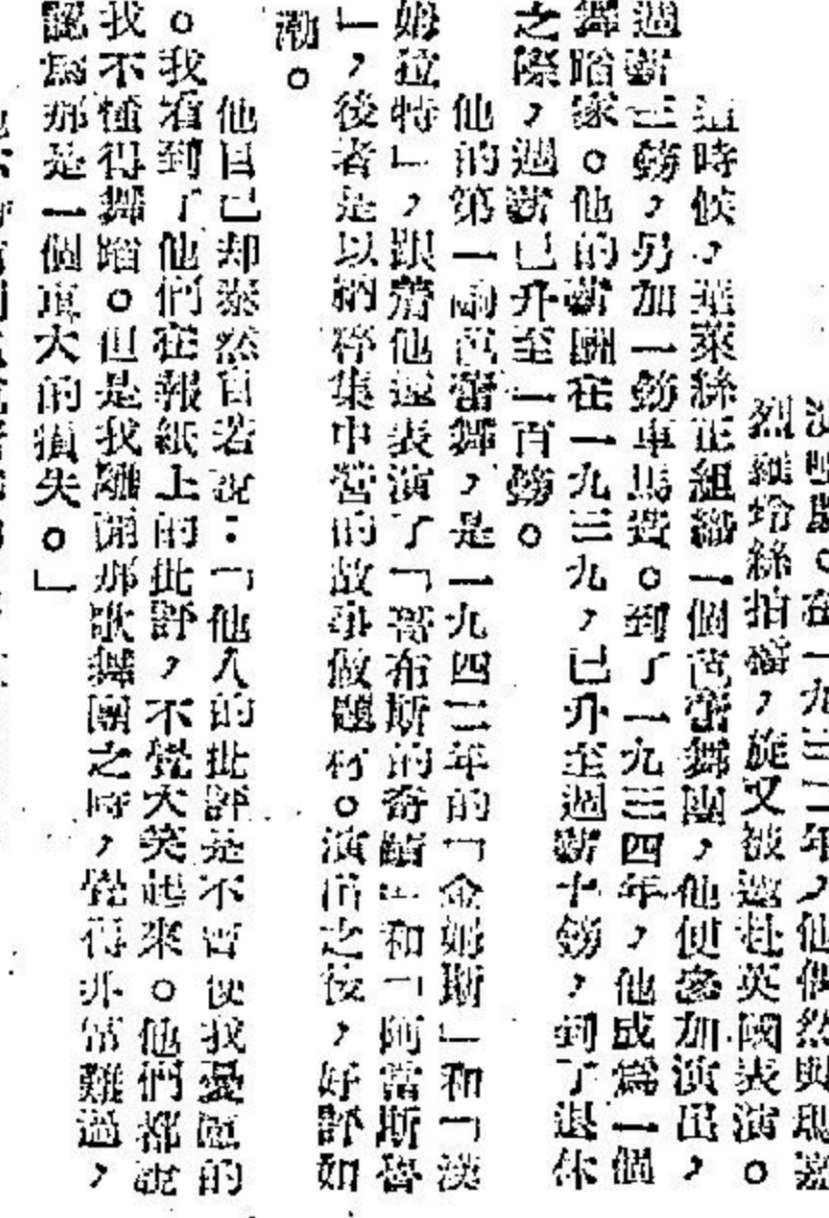 在一九三二年，他偶然與瑪嘉
烈絲拍檔，旋又被邀赴英國表演。
這時候，韋萊絲正組織一個芭蕾舞團，他便參加演出，
週薪三鎊，另加一鎊車馬費。到了一九三四年，他成為一個
舞蹈家。他的薪團在一九三九，已升至週薪十鎊，到了退休
之際，週薪已升至一百鎊。
他的第一齣芭蕾舞，是一九四二年的「金姆斯」和「漢
姆拉特」，跟着他還表演了「哥布斯的奇蹟」和「阿當斯魯
」，後者是以納粹集中營的故事做題材。演出之後，好評如
潮。
他自己却泰然自若說：「他人的批評是不曾使我憂慮的
。我看到了他們在報紙上的批評，不覺大笑起來。他們都說
我不懂得舞蹈。但是我離開那歌舞團之時，覺得非常難過，
認為那是一個重大的損失。」